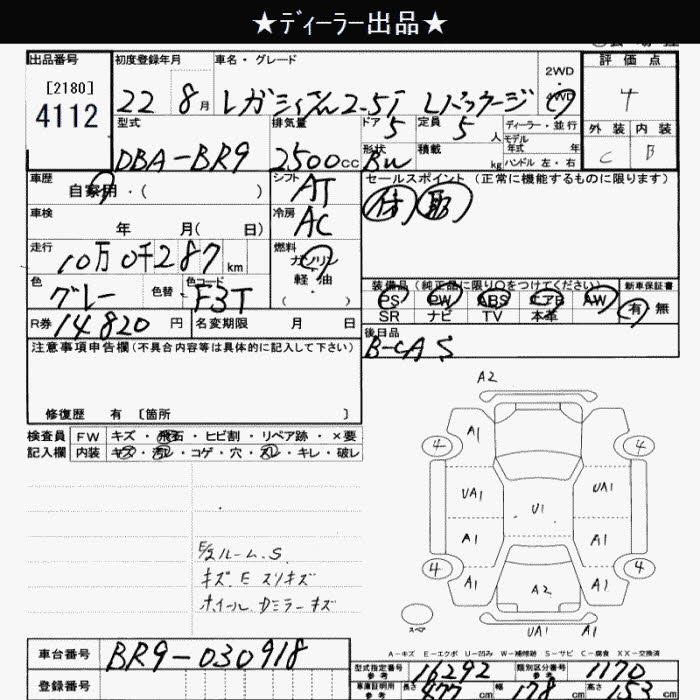 ★ディーラー出品★
出品番号 初度登録年月 車名・グレード 2WD 評価点
[2180] 4112 22 8月 レガシィワゴン2.5i Lパッケージ 4WD 4
型式 排気量 ドア 定員 ディーラー・並行 外装 内装
5 5人 モデル年式 年式
DBA-BR9 2500cc 形状 積載 C B
BW kg ハンドル 左・右
車歴 シフト セールスポイント (正常に機能するものに限ります)
自家用・( ) AT
車検 冷房
年 月( 日) AC
走行 燃料
10万0千287km ガソリン
色 色替 色コード 軽・油
グレー F3T ・( )
装備品(純正品に限り○をつけてください) 新車保証書
PS PW ABS エアB AW 有 無
SR ナビ TV 本革
R券 14820円 名変期限 月 日
後日品
B-CAS
注意事項申告欄(不具合内容等は具体的に記入して下さい)
修復歴 有 〔箇所 〕
検査員 FW キズ・飛石・ヒビ割・リペア跡・×要
記入欄 内装 キズ・汚レ・コゲ・穴・スレ・キレ・破レ
A2
A1
4 4
UA1 U1 UA1
A1 A1
4 4
A1 A2 A1
スペア UA1 A1
E/Sルーム.S
キズ E スリキズ
ホイール Dミラーキズ
A-キズ E-エクボ U-凹み W-補修跡 S-サビ C-腐食 XX-交換済
車台番号 BR9-030918
型式指定番号 参考 16292 類別区分番号 参考 1170
登録番号
車庫証明用 参考 長さ 477cm 幅 178cm 高さ 153cm